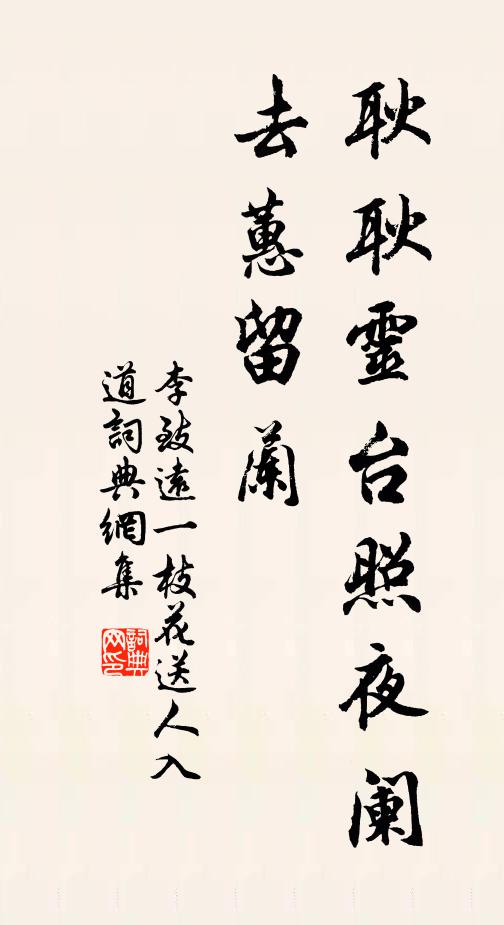 耿耿靈台照夜闌
去蕙留蘭
李致遠一枝花送人入
道詞典網集
詞典网印